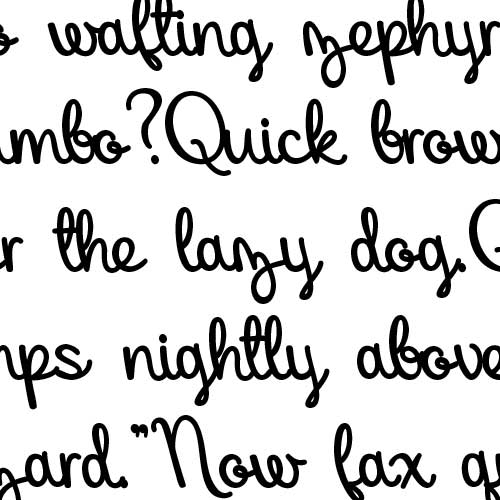 wafting zephyr
umbo?Quick brow
r the lazy dog.
mps nightly above
zard."Now fax qu